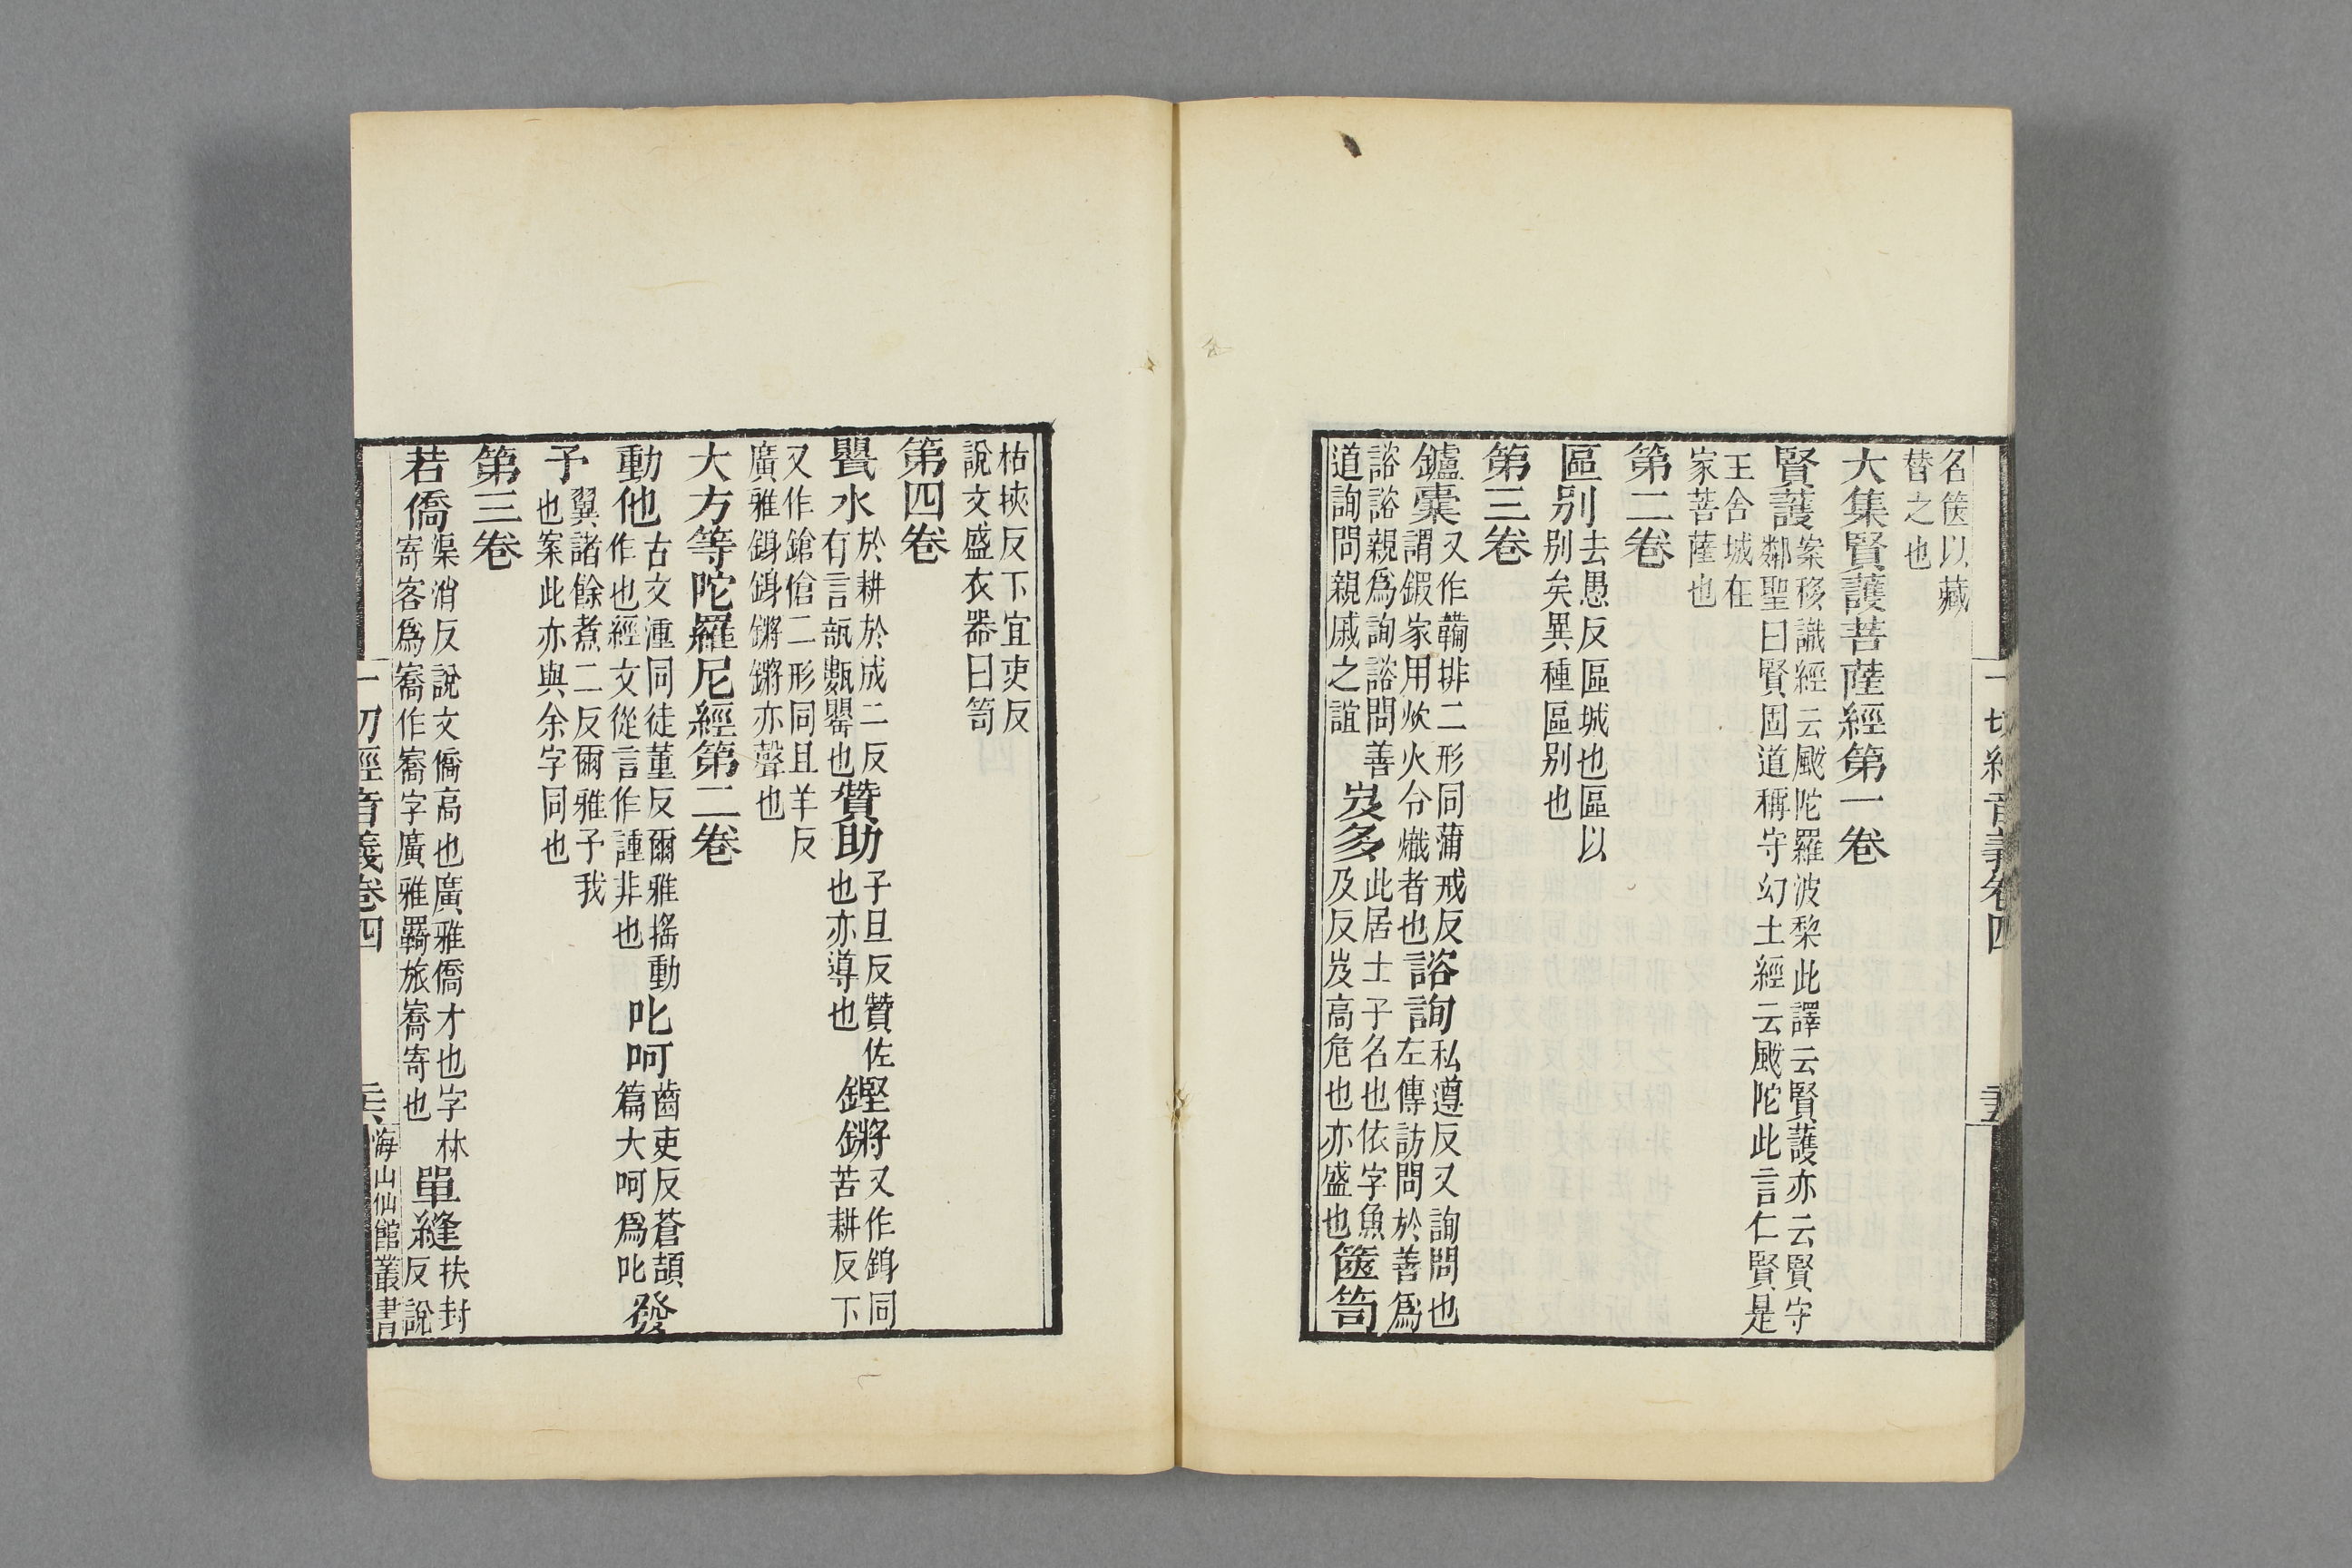 名篋以藏
替之也
大集賢護菩薩經第一卷
賢護案移識經云颰陀羅波棃此譯云賢護亦云賢守
鄰聖曰賢固道稱守幻士經云颰陀此言仁賢是
王舍城在
家菩薩也
第二卷
區别去愚反區城也區以
别矣異種區别也
第三卷
鑪橐又作韛排二形同蒲戒反
謂鍜家用炊火令熾者也
諮詢私遵反又詢問也
左傳訪問於善爲
諮諮親爲詢諮問善
道詢問親戚之誼
岌多此居士子名也依字魚
及反岌高危也亦盛也
篋笥
一切經音義卷四
枯挾反下宜吏反
說文盛衣器曰笥
第四卷
甖水於耕於成二反
有言瓿甊甖也
贊助子旦反贊佐
也亦導也
鏗鏘又作鎿同
苦耕反下
又作鎗傖二形同且羊反
廣雅鎿鎿鏘鏘亦聲也
大方等陀羅尼經第二卷
動他古文湩同徒董反爾雅搖動
作也經文從言作諥非也
叱呵齒吏反蒼頡
篇大呵爲叱
發
予翼諸餘煮二反爾雅予我
也案此亦與余字同也
第三卷
若僑渠消反說文僑高也廣雅僑才也字林
寄客爲㝯作㝯字廣雅羈旅㝯寄也
單縫扶封
反說
一切經音義卷四
海山仙館叢書